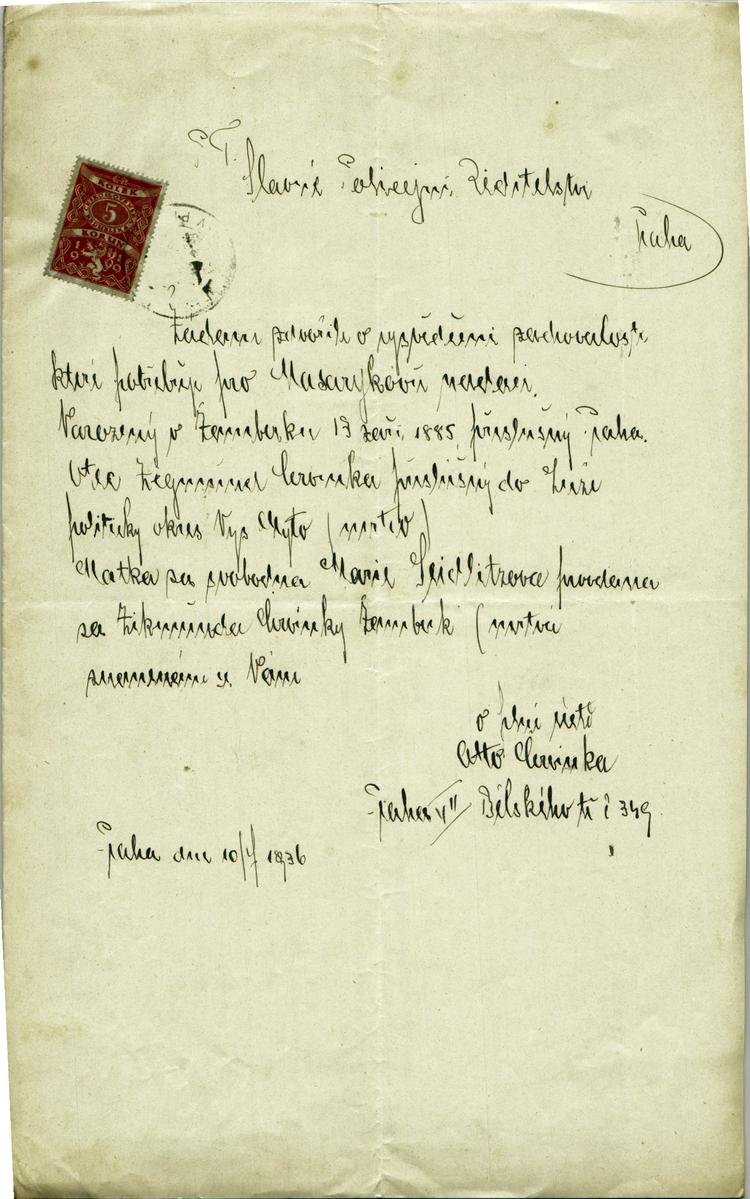 P. T.
Slavné Policejní Ředitelství
Praha
KOLEK
5
KORUN
Žádám zdvořile o vysvědčení zachovalosti
které potřebuji pro Masarykovu nadaci.
Narozený v Žamberku 13 září 1885, příslušný Praha.
Otec Zigmund Červinka příslušný do Luže
politický okres Vys Mýto (mrtev)
Matka za svobodna Marie Seidlitzova provdana
za Zikmunda Červinky Žamberk (mrtvá
znamenám se Vám
v plné úctě
Otto Červinka
Praha VII Bělského tř č 349
Praha dne 10/7 1936